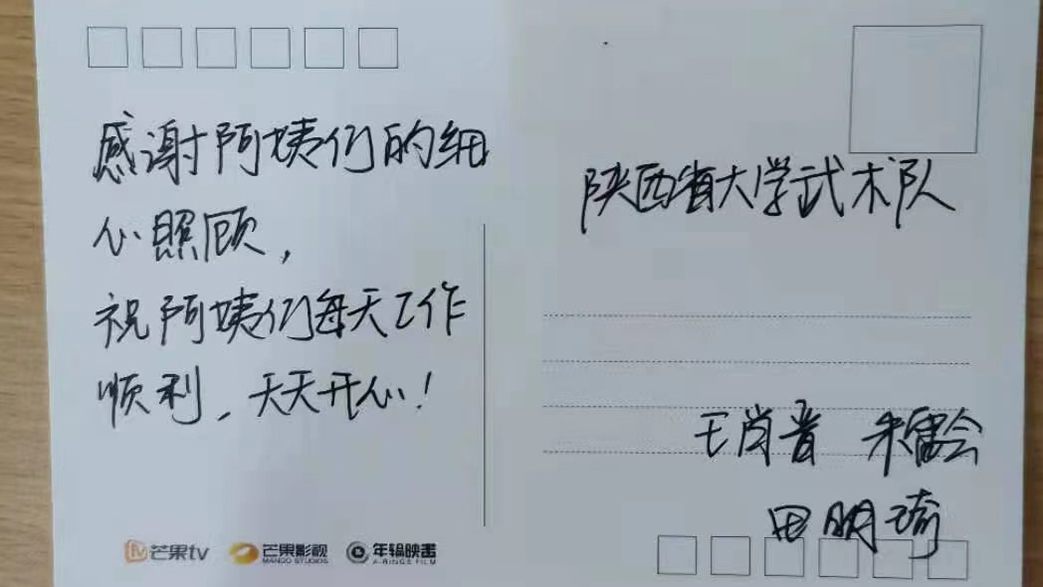 感谢阿姨们的细
心照顾，
祝阿姨们每天工作
顺利，天天开心！
陕西省大学武术队
王肖晋
田朋琦
芒果tv
芒果影视
MANGO STUDIOS
年轮映画
A-RINGS FILM